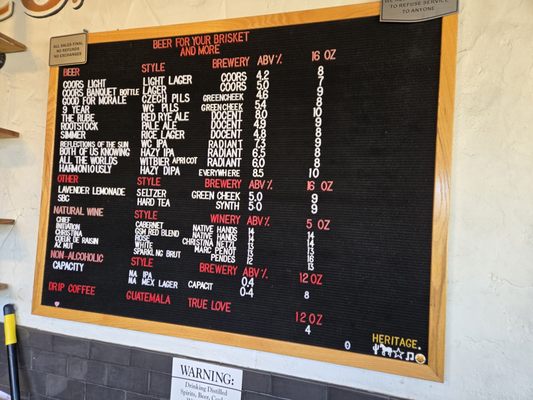 ALL SALES FINAL
NO REFUNDS
NO EXCHANGES
TO REFUSE SERVICE
TO ANYONE
BEER FOR YOUR BRISKET
AND MORE
BEER STYLE BREWERY ABV% 16 OZ
COORS LIGHT LIGHT LAGER COORS 4.2 8
COORS BANQUET BOTTLE LAGER COORS 5.0 7
GOOD FOR MORALE CZECH PILS GREENCHEEK 4.6 9
9 YEAR WC PILS GREENCHEEK 5.4 8
THE RUBE RED RYE ALE DOCENT 8.0 10
ROOTSTOCK PALE ALE DOCENT 4.9 8
SIMMER RICE LAGER DOCENT 4.8 8
REFLECTIONS OF THE SUN WC IPA RADIANT 7.3 9
BOTH OF US KNOWING HAZY IPA RADIANT 6.5 8
ALL THE WORLDS WITBIER APRICOT RADIANT 6.0 8
HARMONIOUSLY HAZY DIPA EVERYWHERE 8.5 10
OTHER STYLE BREWERY ABV% 16 OZ
LAVENDER LEMONADE SELTZER GREEN CHEEK 5.0 9
SBC HARD TEA SYNTH 5.0 9
NATURAL WINE STYLE WINERY ABV% 5 OZ
CHIEF CABERNET NATIVE HANDS 14 14
INITIATION GSM RED BLEND NATIVE HANDS 14
CHRISTINA ROSE CHRISTINA NETZL
COEUR DE RAISIN WHITE MARC PENOT
AZ NUT SPARKLNG BRUT PENDES 12 13
NON-ALCOHOLIC STYLE BREWERY ABV% 12 OZ
CAPACITY NA IPA CAPACIT 0.4
NA MEX LAGER 0-4 8
DRIP COFFEE GUATEMALA TRUE LOVE 12 OZ
4
HERITAGE.
WARNING:
Drinking Distilled